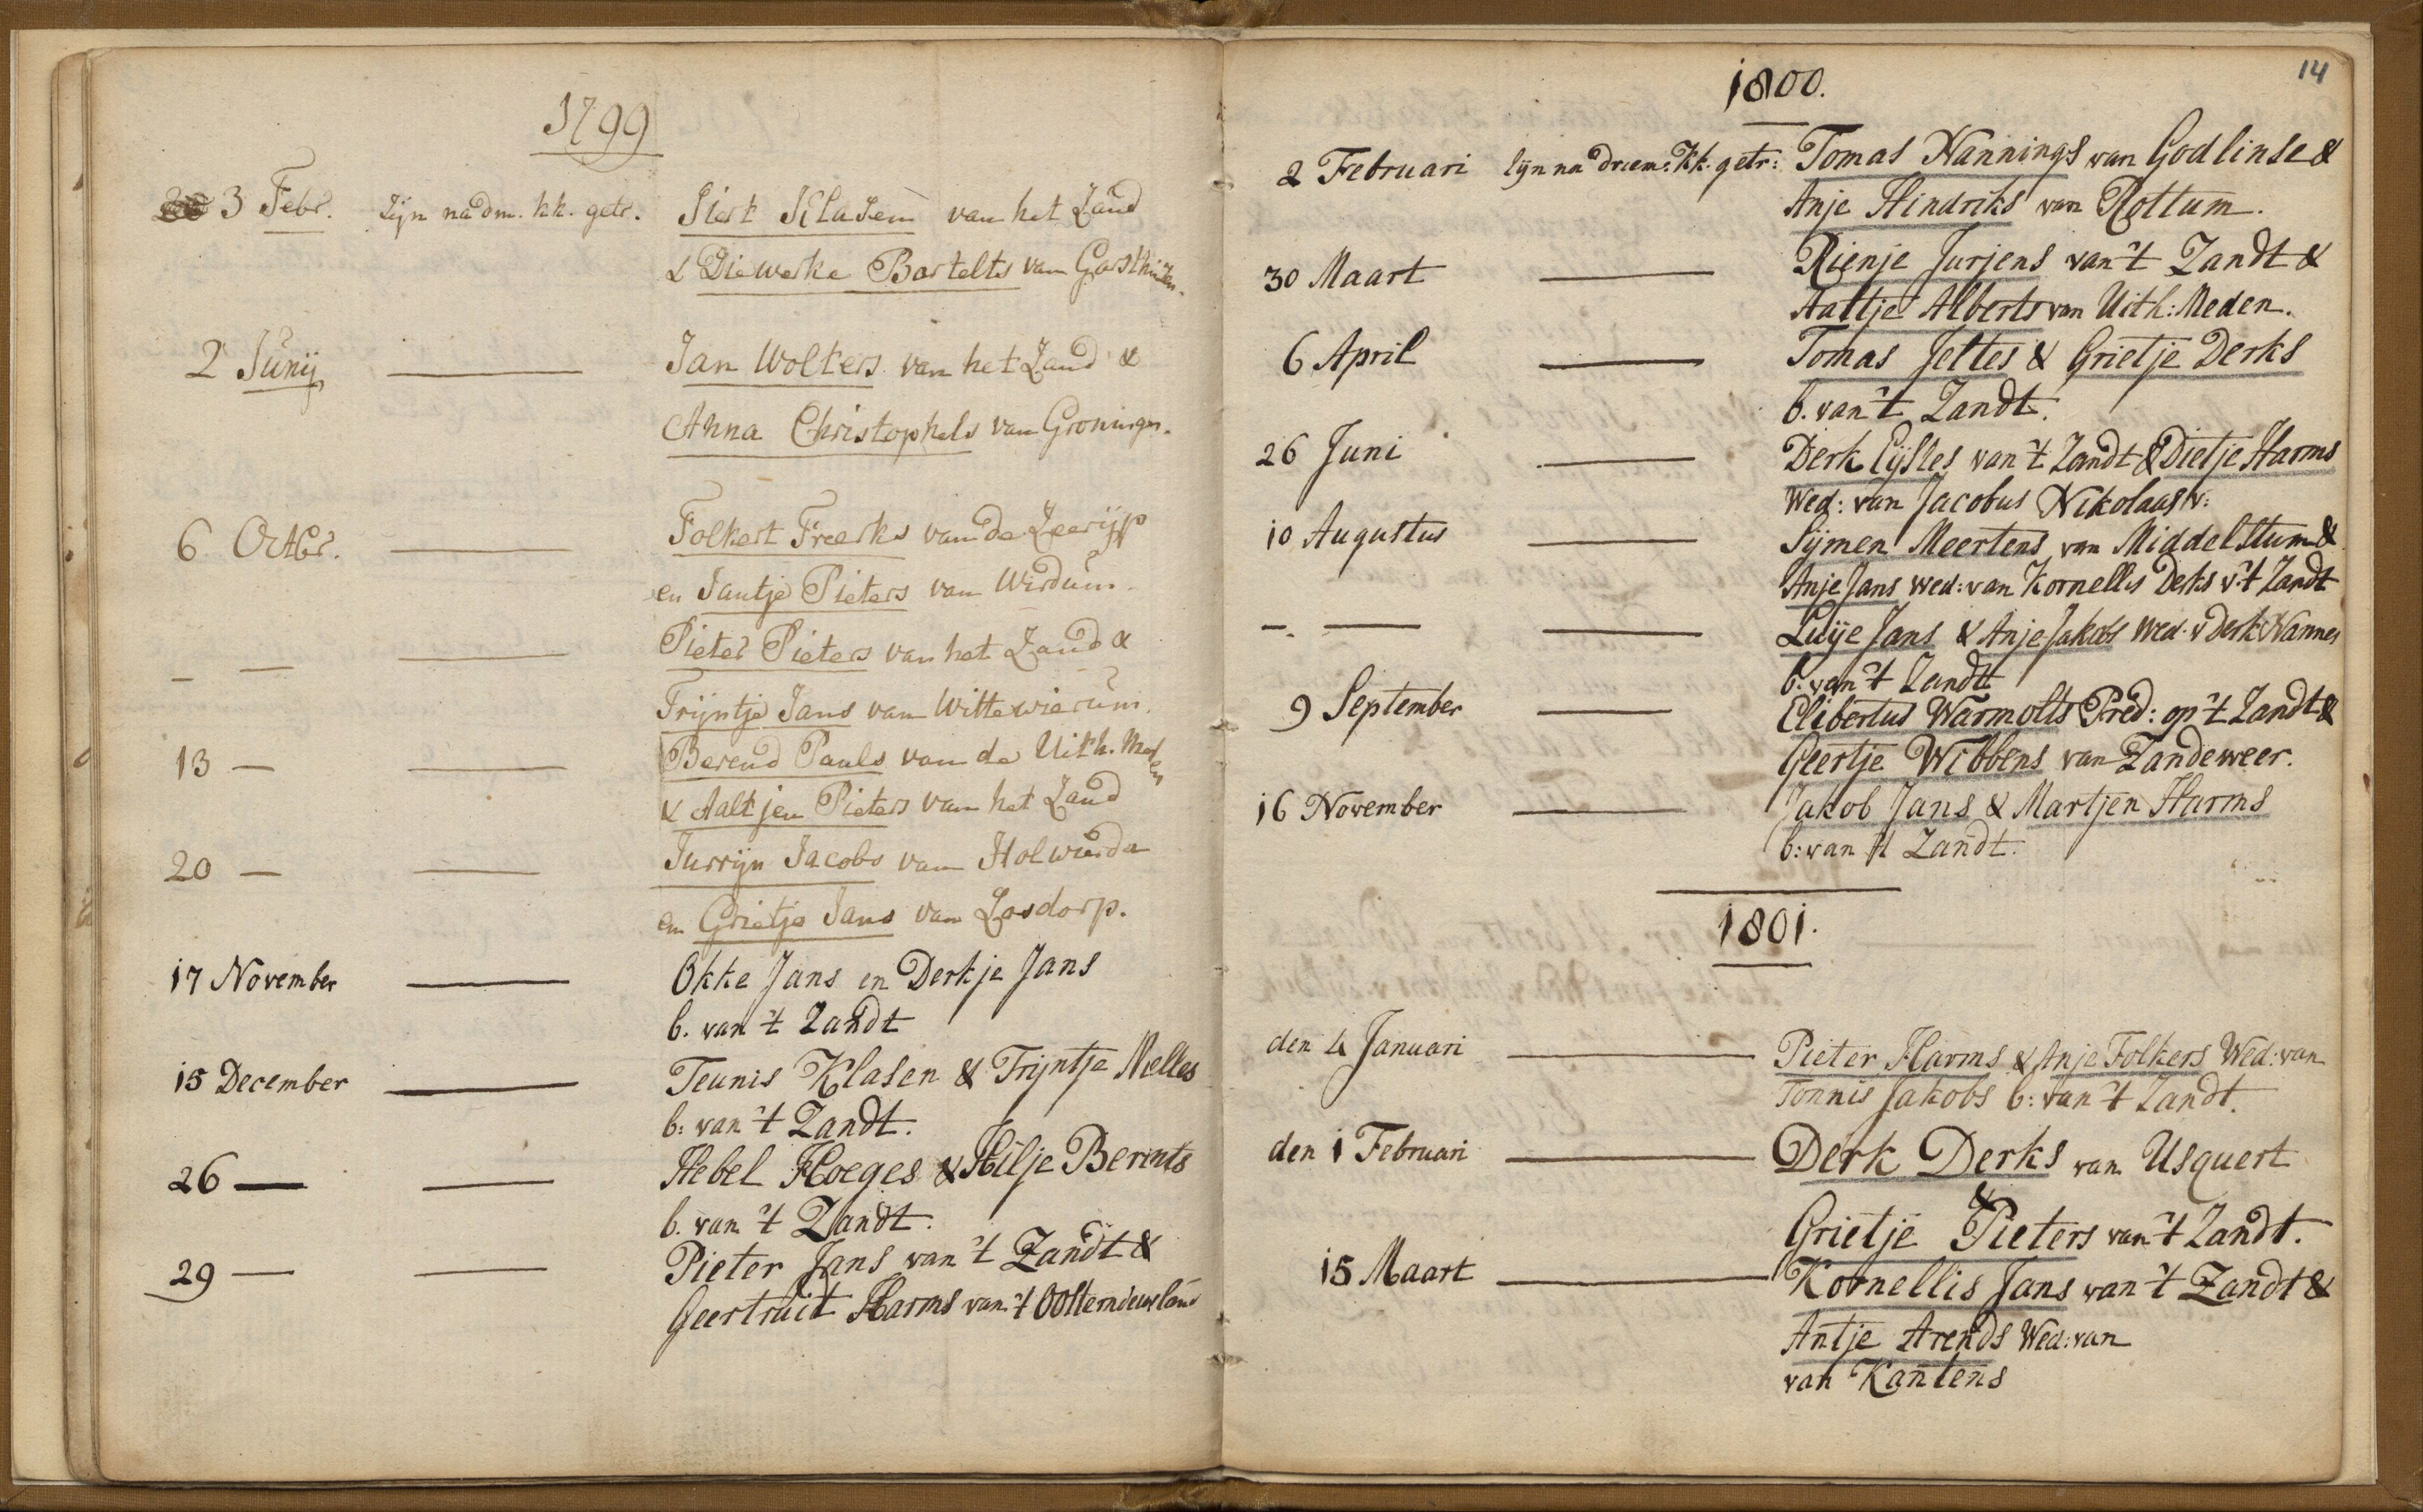 1799
3 Febr. Zijn na dm. kk. getr. Siert Klasen van het Zand
& Diewerke Bartelts van Garsthuizen.
2 Junij Jan Wolters van het Zand &
Anna Christophels van Groningen.
6 Octbr. Folkert Freerks van de Zeerijp
en Jantje Pieters van Wirdum.
Pieter Pieters van het Zand &
Trijntje Jans van Wittewierum.
13 — Berend Pauls van de Uith. Meden
& Aaltjen Pieters van het Zand
20 — Jurrijn Jacobs van Holwierda
en Grietje Jans van Losdorp.
17 November Okke Jans en Derkje Jans
b. van 't Zandt
15 December Teunis Klasen & Trijntje Melles
b: van 't Zandt.
26 — Hebel Hoeges & Hilje Berents
b. van 't Zandt.
29 — Pieter Jans van 't Zandt &
Geertruit Harms van 't Oosternieuwland
14
1800.
2 Februari Zijn na driem: kk. getr: Tomas Nannings van Godlinse &
Anje Hindriks van Rottum.
30 Maart Rienje Jurjens van 't Zandt &
Aaltje Alberts van Uith: Meden.
6 April Tomas Jeltes & Grietje Derks
b. van 't Zandt.
26 Juni Derk Eijsses van 't Zandt & Dietje Harms
Wed: van Jacobus Nikolaas v:
10 Augustus Sijmen Meertens van Middelstum &
Anje Jans wed: van Kornellis Derks v. 't Zandt
Luije Jans & Anje Jakobs Wed. v Derk Nannes
b. van 't Zandt
9 September Elibertus Warmolts Pred: op 't Zandt &
Geertje Wibbens van Zandeweer.
16 November Jakob Jans & Martjen Harms
b: van 't Zandt.
1801.
den 4 Januari Pieter Harms & Anje Folkers Wed: van
Tonnis Jakobs b: van 't Zandt.
den 1 Februari Derk Derks van Usquert
&
Grietje Pieters van 't Zandt.
15 Maart Kornellis Jans van 't Zandt &
Antje Arends Wed: van
van Kantens